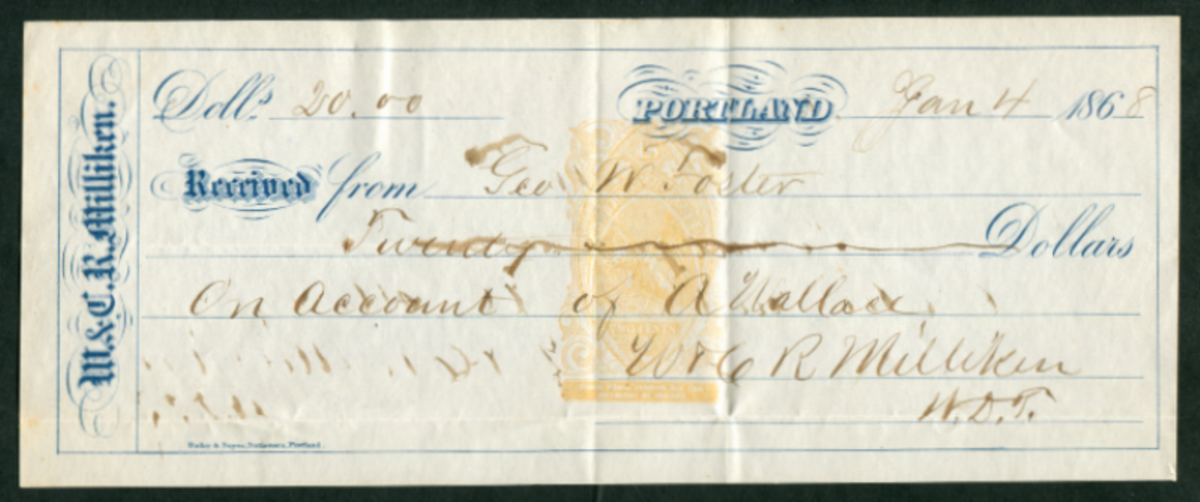 W. & C. R. Milliken.
Dolls. 20.00 PORTLAND Jan 4 1868
Received from Geo W Foster
Twenty Dollars
On account of A Wallace
W & C R Milliken
W.D.T.
Stationers, Portland.